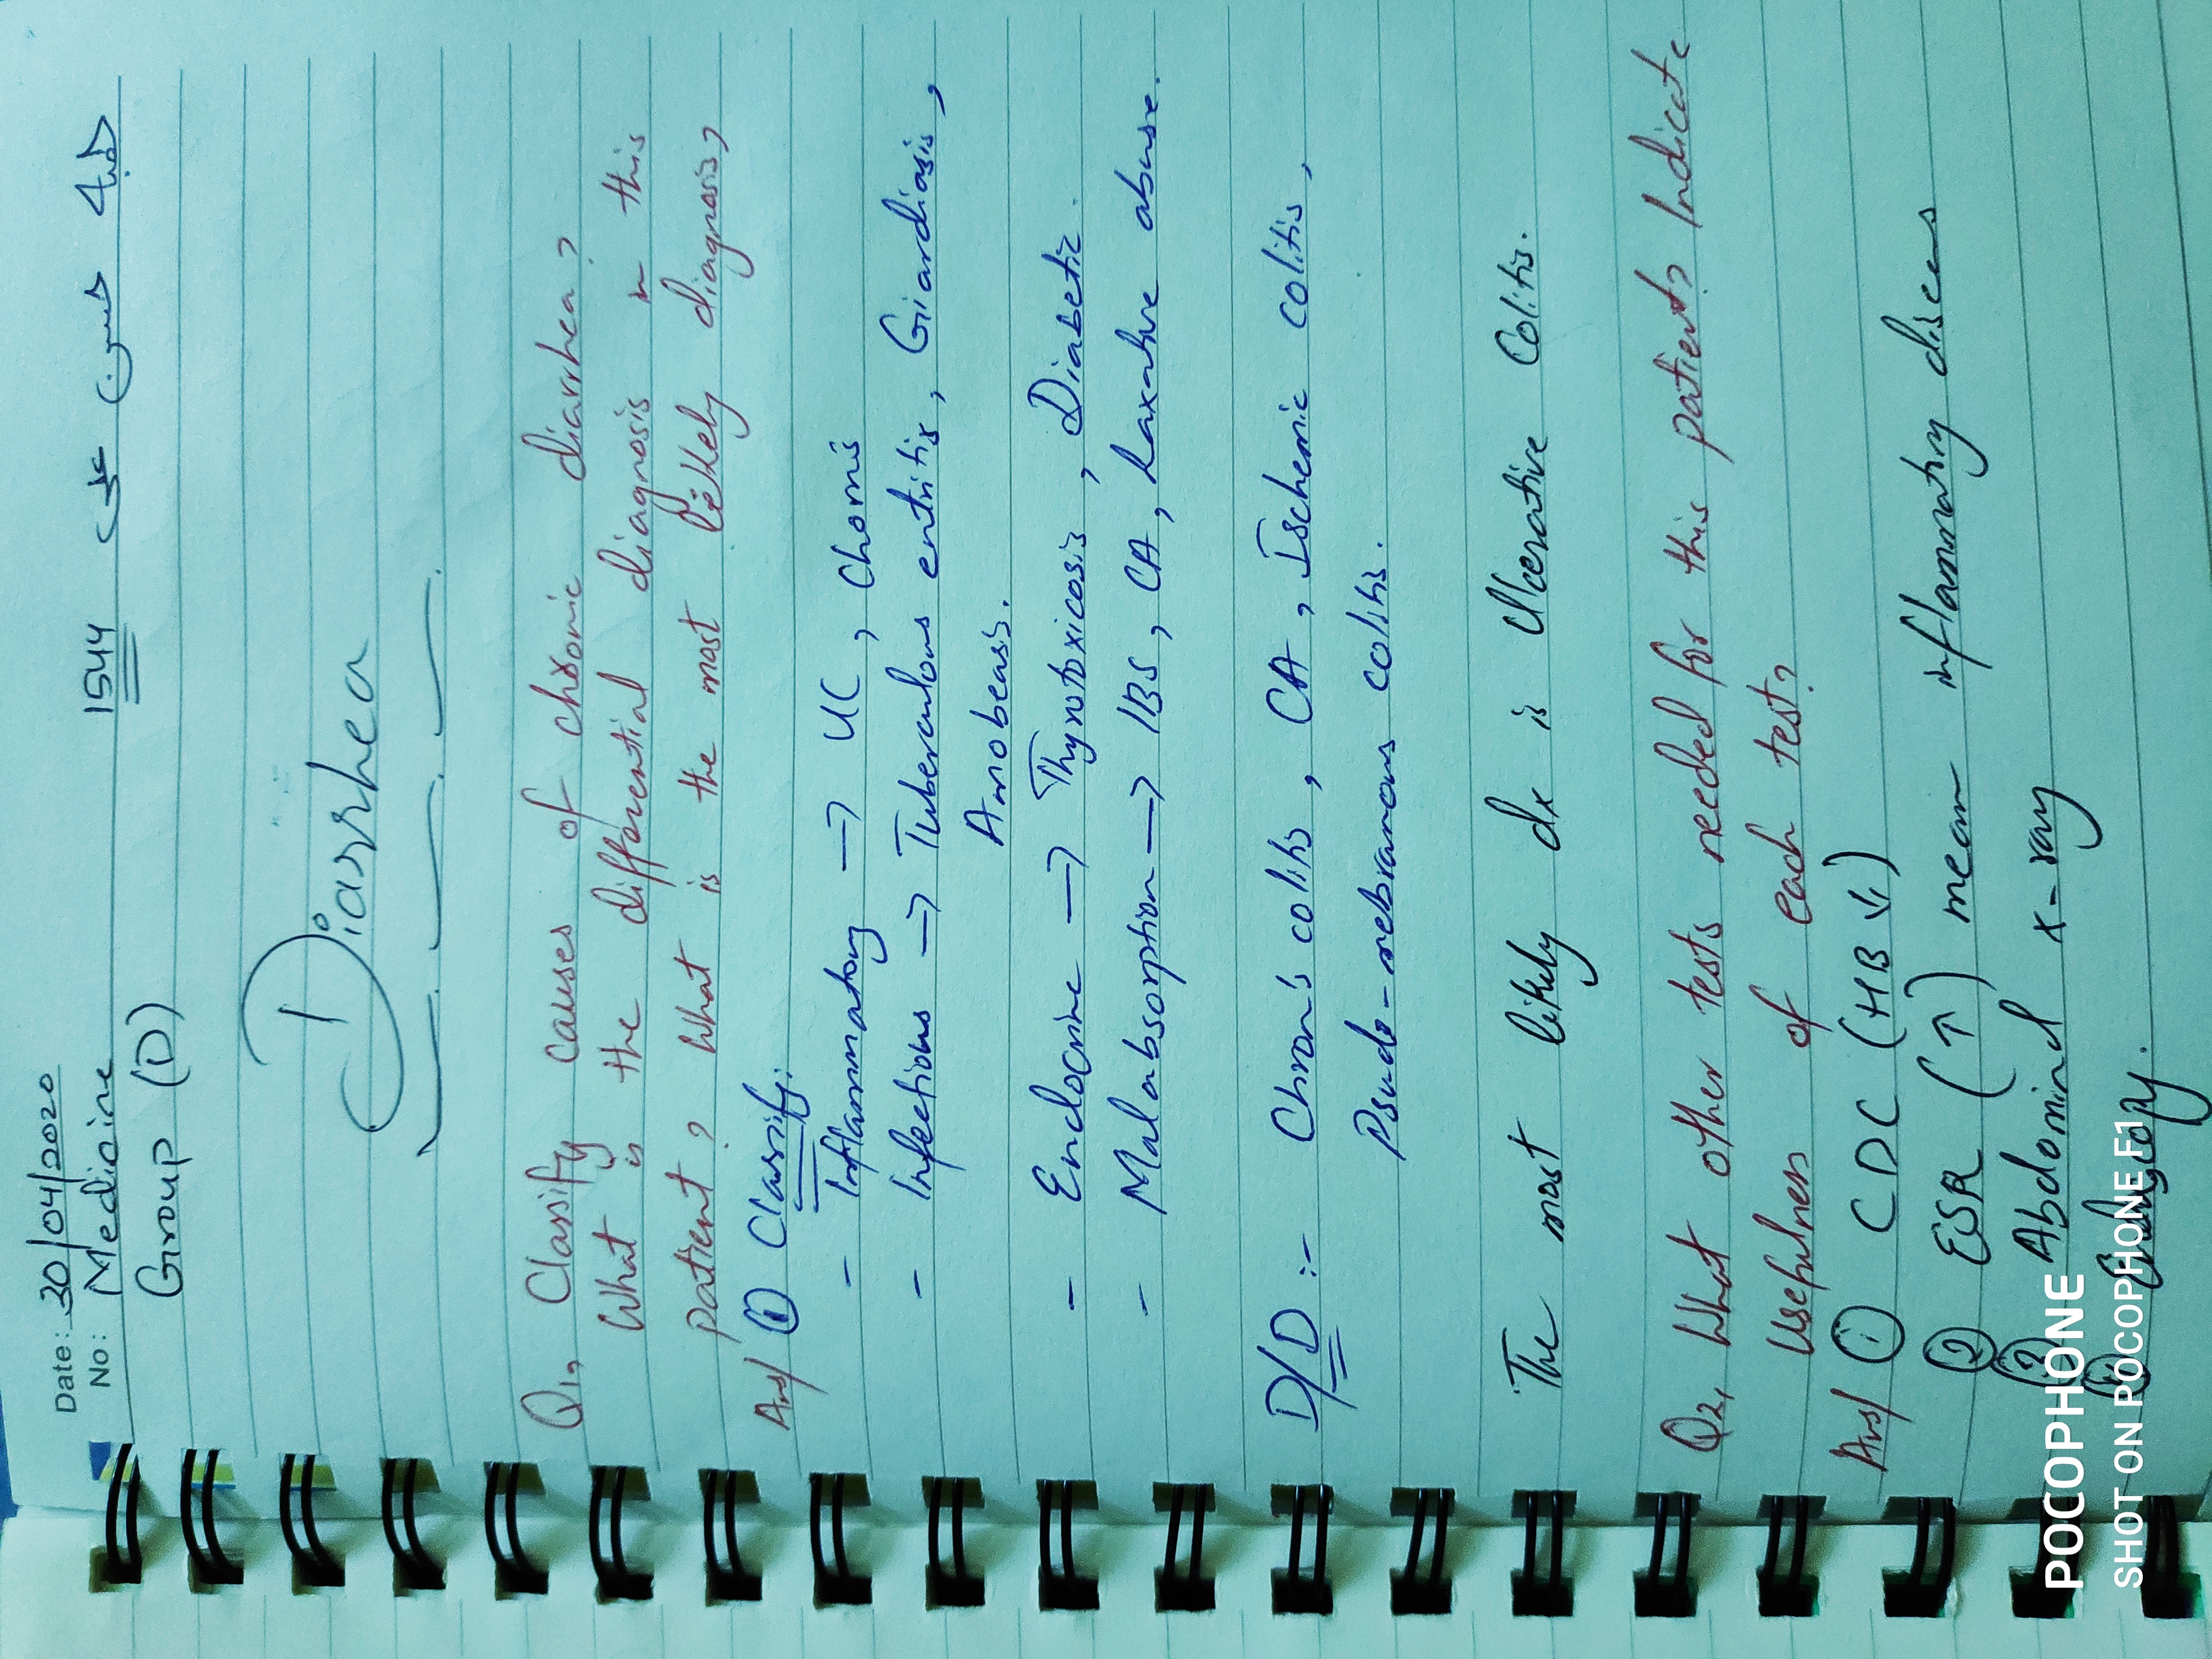 Date: 30/04/2020
No: Medicine 1544
Group (D)
Diarrhea
Q1, Classify causes of chronic diarrhea?
What is the differential diagnosis in this
patient? What is the most likely diagnosis?
Ans/ ① Classify:
- Inflammatory → UC, Chornis
- Infectious → Tuberculous entritis, Giardiasis,
Amobeasis.
- Endocrine → Thyrotoxicosis, Diabetic.
- Malabsorption → IBS, CA, Laxative abuse.
D/D :- Chron's colitis, CA, Ischemic colitis,
Psudo-mebranous colitis.
The most likely dx is Ulcerative Colitis.
Q2, What other tests needed for this patient? Indicate
usefulness of each test?
Ans/ ① CDC (HB ↓)
② ESR (↑) mean inflammatory diseas
③ Abdominal x-ray
POCOPHONE
SHOT ON POCOPHONE F1